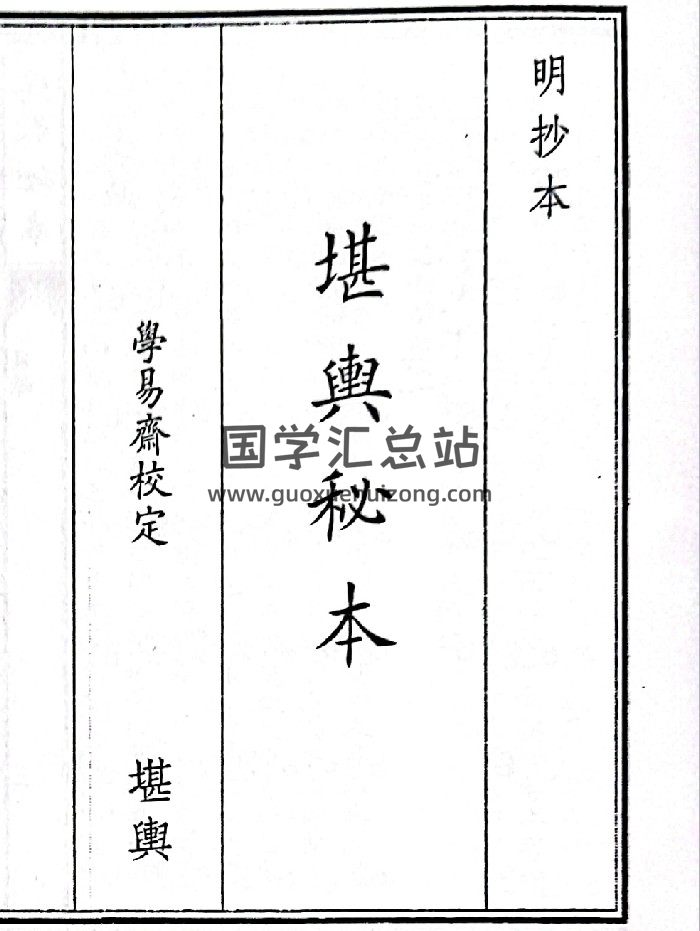 明抄本
堪輿秘本
學易齋校定
堪輿
国学汇总站
www.guoxuehuizong.com